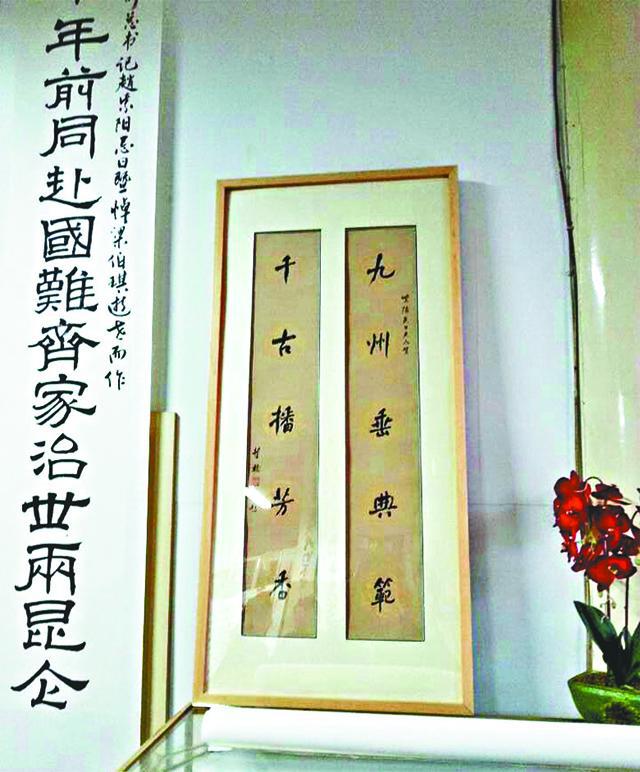 九州垂典範
千古播芳香
总书记趙紫阳忌日暨悼梁伯琪逝世而作
年前同赴國難齊家治世兩昆仑